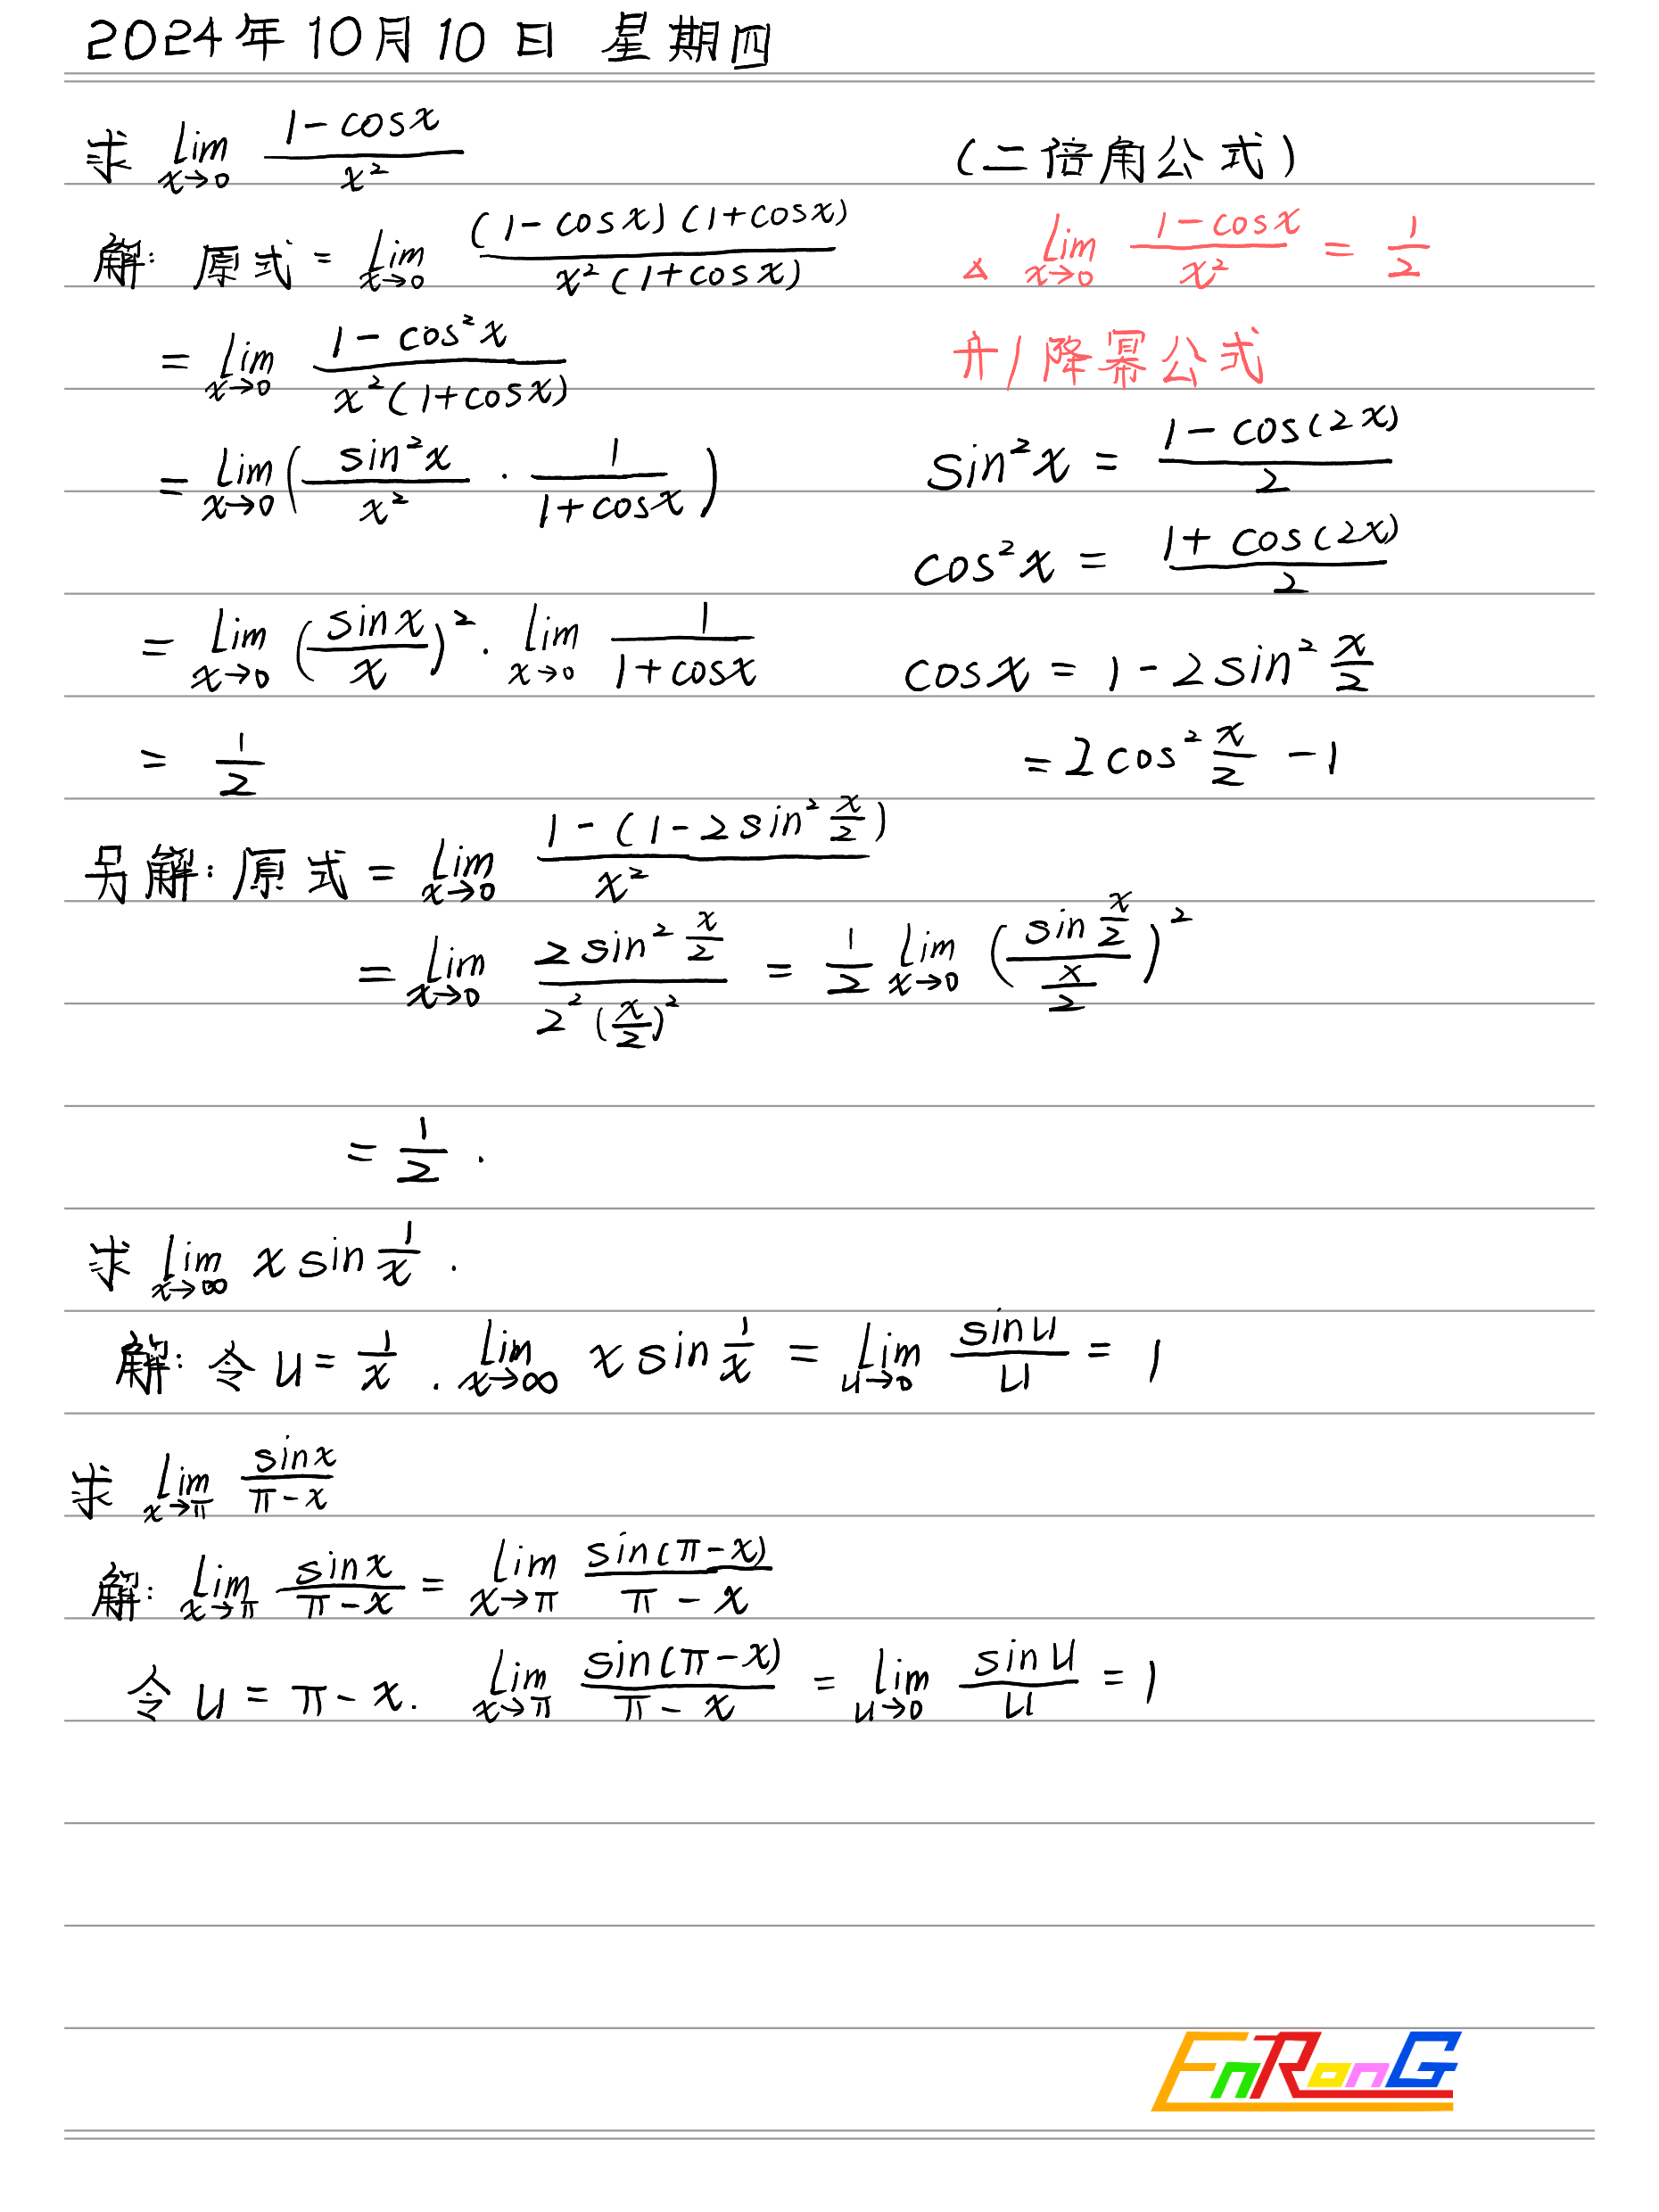 2024年10月10日 星期四
求 lim x→0 (1-cosx)/x²
(二倍角公式)
解: 原式 = lim x→0 ((1-cosx)(1+cosx))/(x²(1+cosx))
△ lim x→0 (1-cosx)/x² = 1/2
= lim x→0 (1-cos²x)/(x²(1+cosx))
升/降幂公式
= lim x→0 (sin²x/x² · 1/(1+cosx))
sin²x = (1-cos(2x))/2
cos²x = (1+cos(2x))/2
= lim x→0 (sinx/x)² · lim x→0 1/(1+cosx)
cosx = 1-2sin² x/2
= 1/2
= 2cos² x/2 -1
另解: 原式 = lim x→0 (1-(1-2sin² x/2))/x²
= lim x→0 (2sin² x/2)/(2²(x/2)²) = 1/2 lim x→0 ((sin x/2)/(x/2))²
= 1/2 .
求 lim x→∞ x sin 1/x .
解: 令 u = 1/x . lim x→∞ x sin 1/x = lim u→0 sinu/u = 1
求 lim x→π sinx/(π-x)
解: lim x→π sinx/(π-x) = lim x→π sin(π-x)/(π-x)
令 u = π-x. lim x→π sin(π-x)/(π-x) = lim u→0 sinu/u = 1
EnRonG